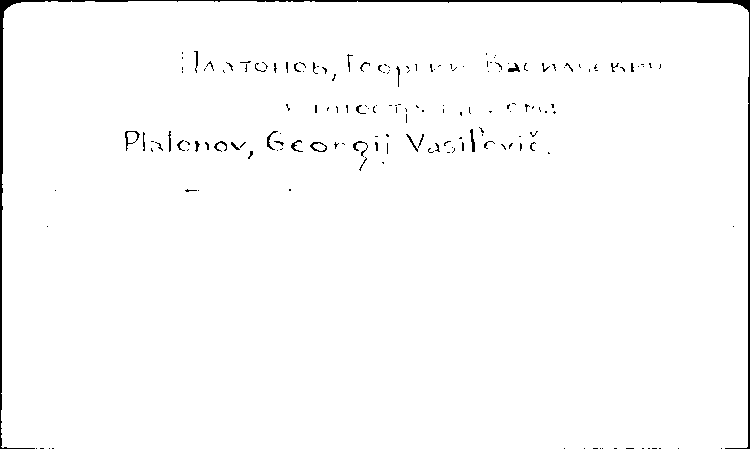 Платонов, Георгий Васильевич
Platonov, Georgij Vasil'evič.